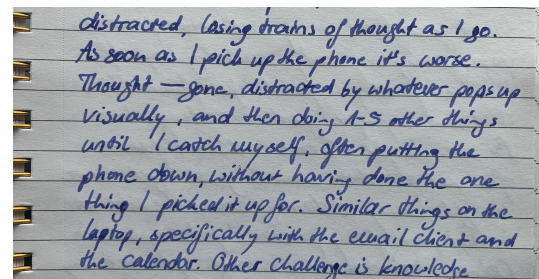 distracted, losing trains of thought as I go.
As soon as I pick up the phone it's worse.
Thought — gone, distracted by whatever pops up
visually, and then doing 1-5 other things
until I catch myself, often putting the
phone down, without having done the one
thing I picked it up for. Similar things on the
laptop, specifically with the email client and
the calendar. Other challenge is knowledge